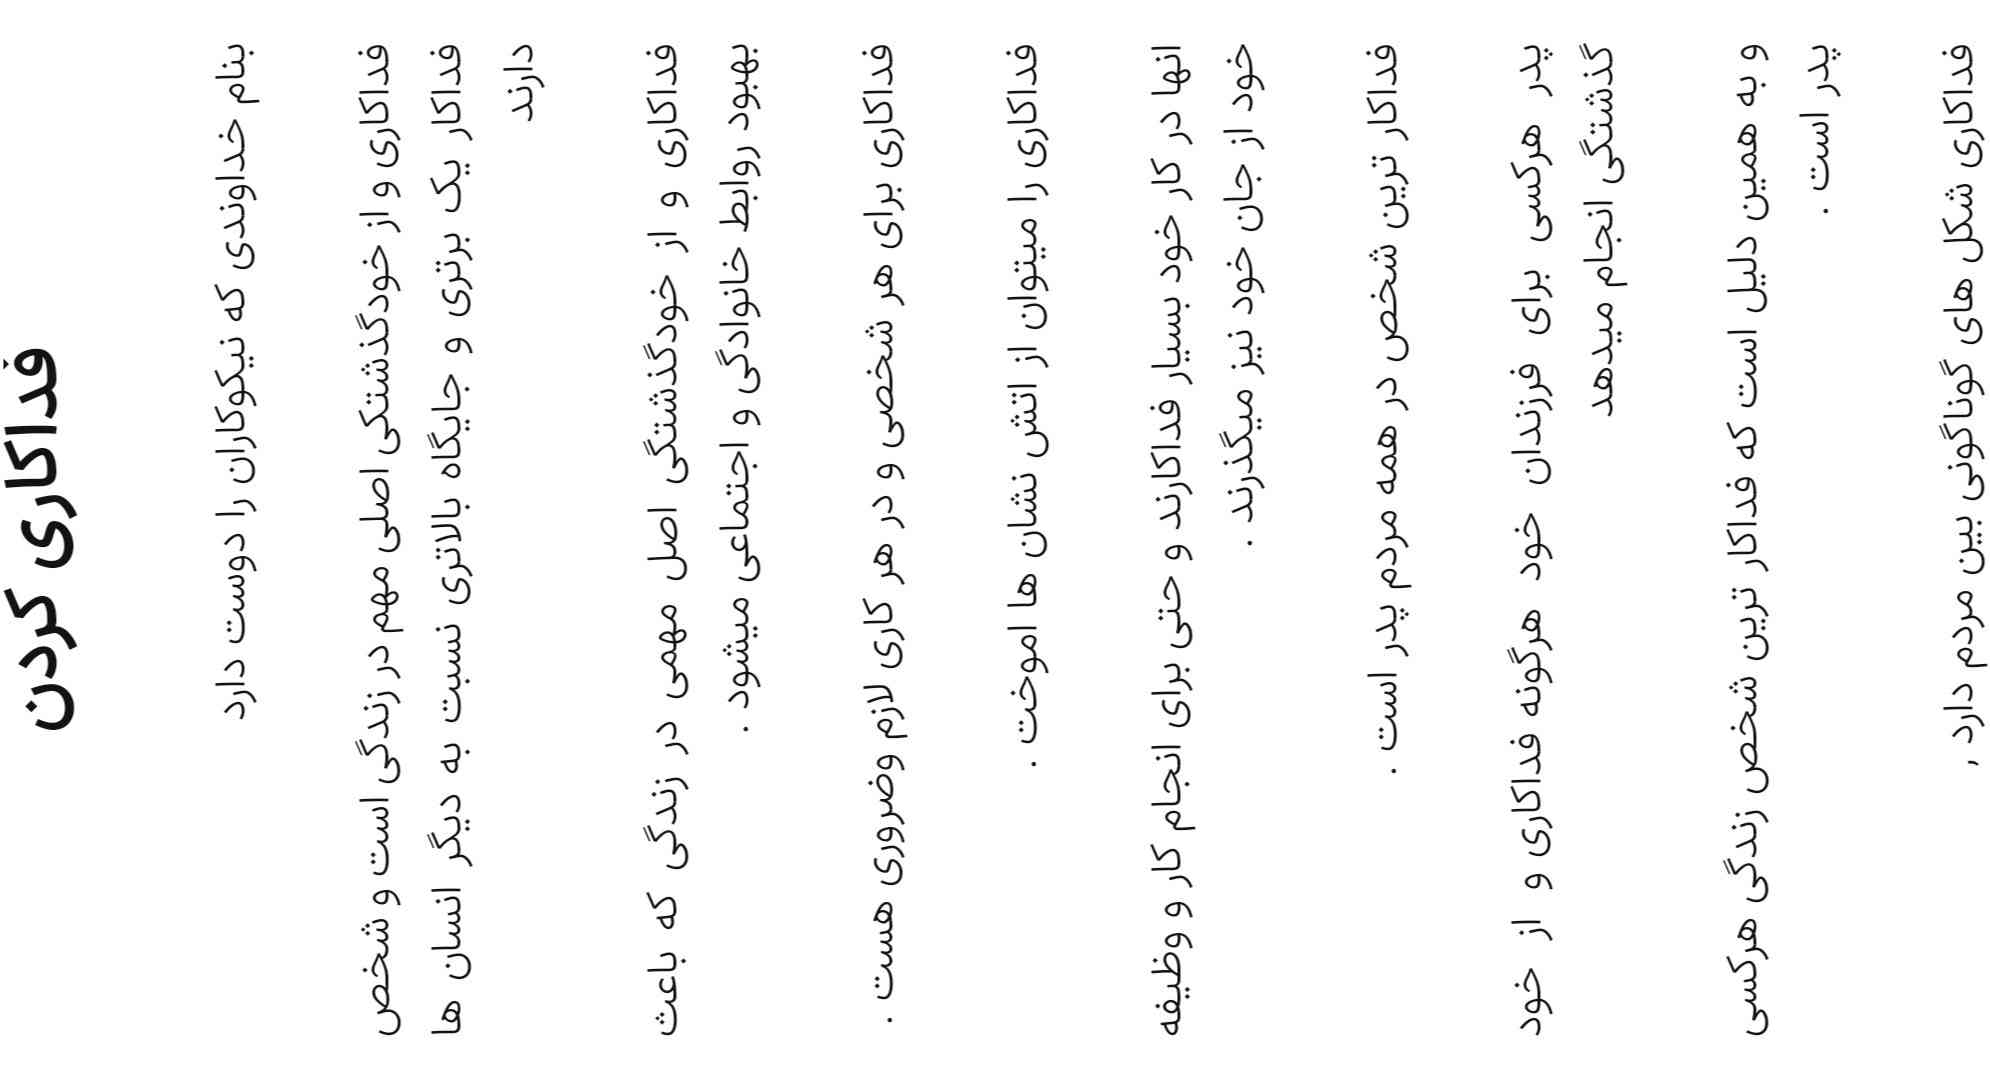 فداکاری کردن
بنام خداوندی که نیکوکاران را دوست دارد
فداکاری و از خودگذشتگی اصلی مهم در زندگی است و شخص
فداکار یک برتری و جایگاه بالاتری نسبت به دیگر انسان ها
دارند
فداکاری و از خودگذشتگی اصل مهمی در زندگی که باعث
بهبود روابط خانوادگی و اجتماعی میشود .
فداکاری برای هر شخصی و در هر کاری لازم وضروری هست .
فداکاری را میتوان از اتش نشان ها اموخت .
انها در کار خود بسیار فداکارند و حتی برای انجام کار و وظیفه
خود از جان خود نیز میگذرند .
فداکار ترین شخص در همه مردم پدر است .
پدر هرکسی برای فرزندان خود هرگونه فداکاری و از خود
گذشتگی انجام میدهد
و به همین دلیل است که فداکار ترین شخص زندگی هرکسی
پدر است .
فداکاری شکل های گوناگونی بین مردم دارد ,